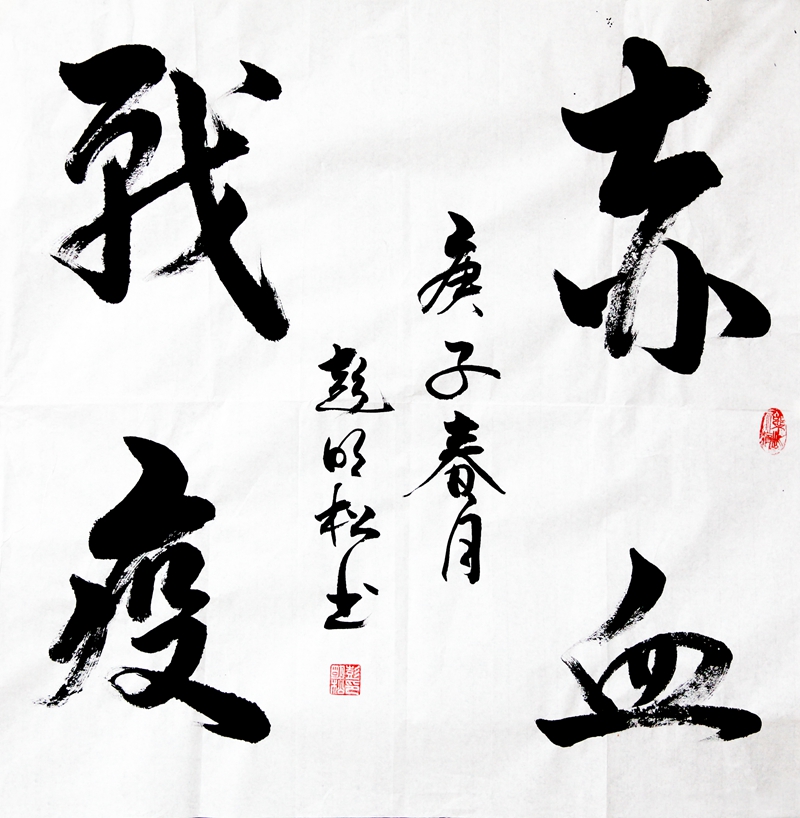 赤血
戰疫
庚子春月
彭明松书